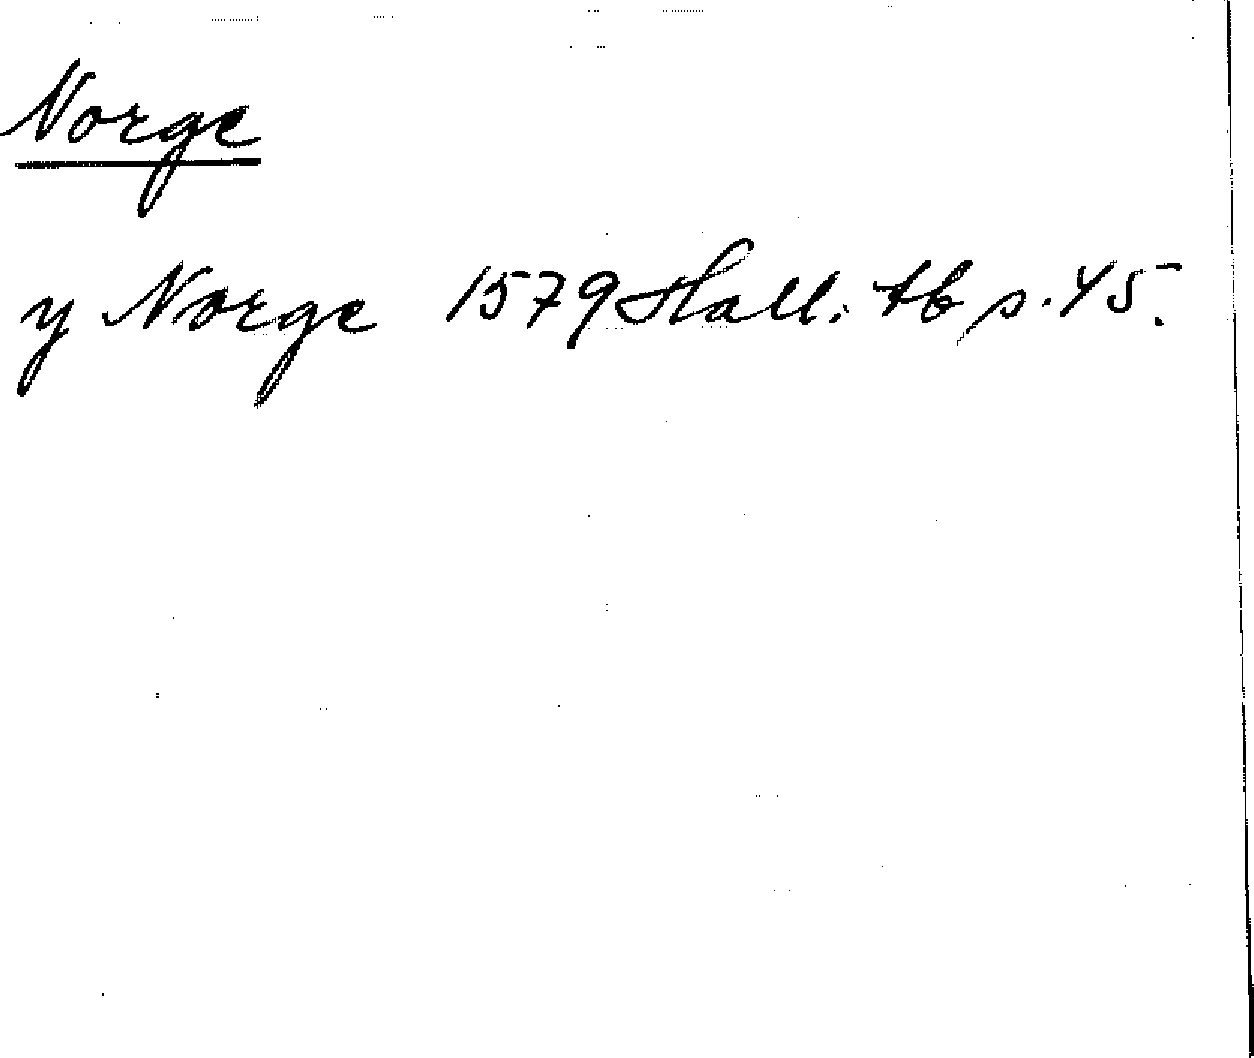 Norge
y Norge 1579 Hall. tb s. 45.